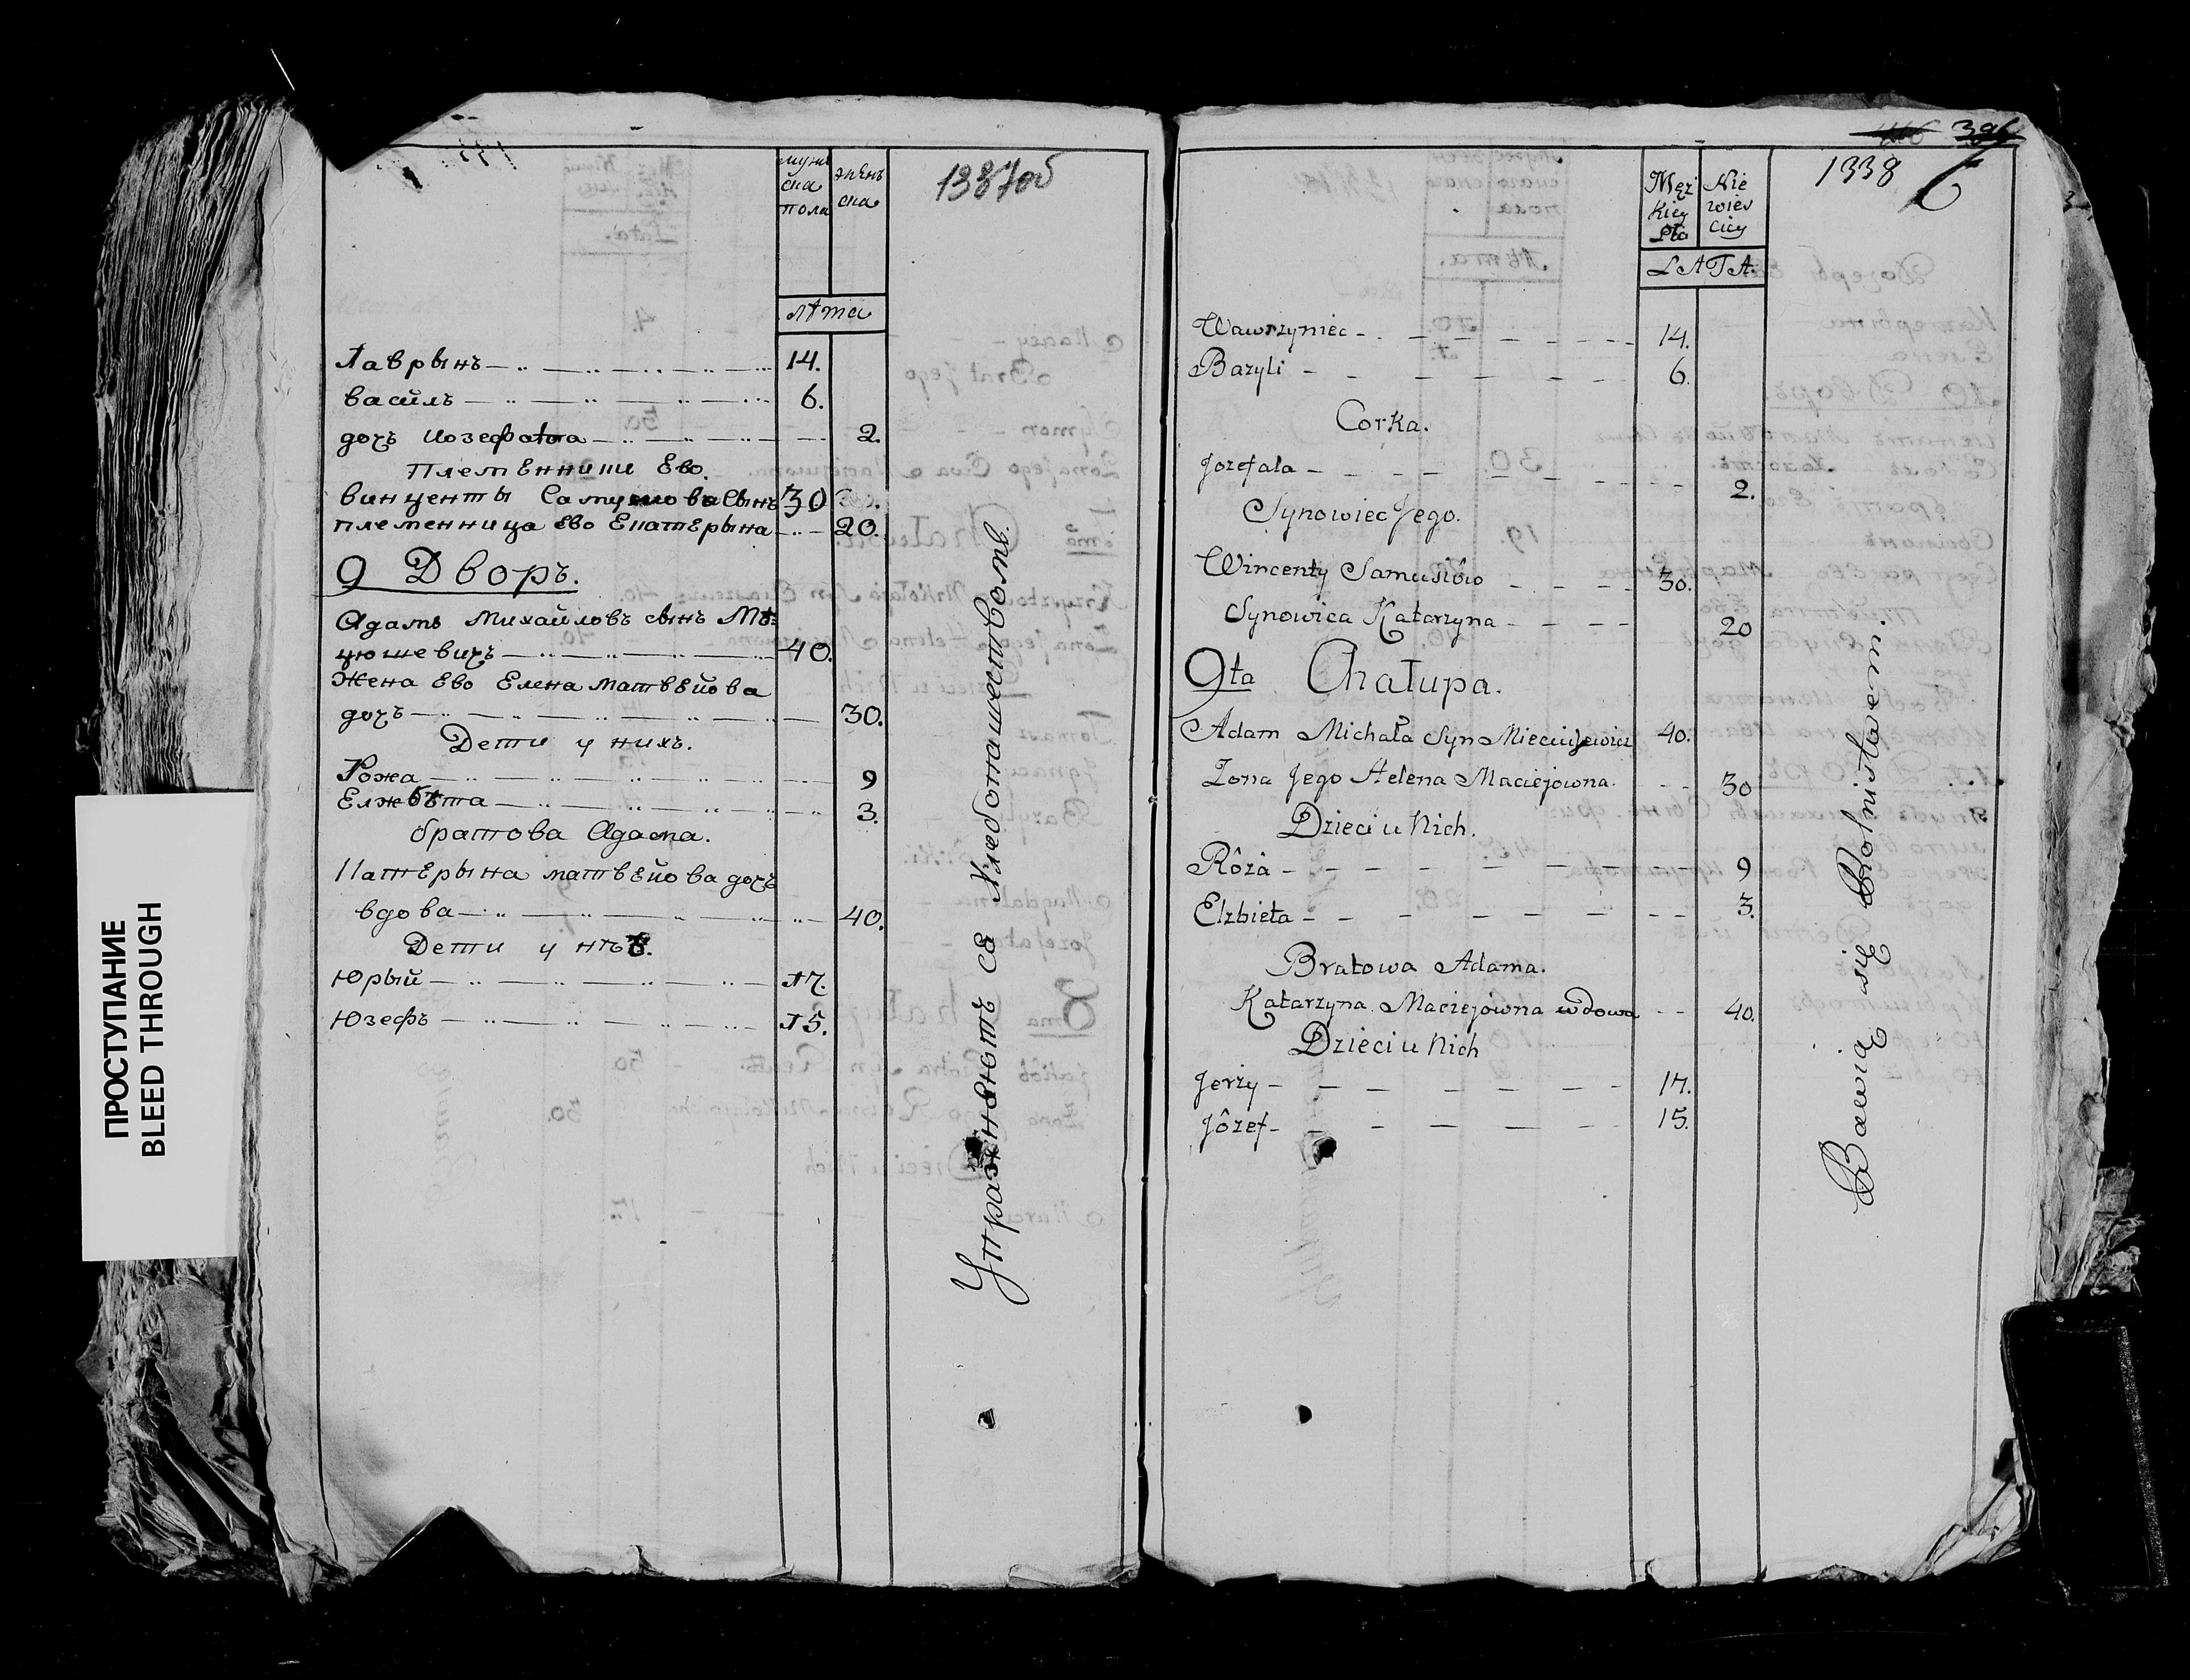 ПРОСТУПАНИЕ
BLEED THROUGH
мужс
ска
пола
женъ
ска
1337об
лѣта
Лаврынъ 14.
василь 6.
дочъ Иозефата 2.
племѣнники Ево.
винценты Самусiова Сынъ 30
племенница Ево Екатерына 20.
9 Дворъ.
Адамъ Михайловъ сынъ Мѣ=
цюшевичъ 40.
Жена Ево Елена матвѣйова
дочъ 30.
Дети у нихъ.
Рожа 9
Елжбѣта 3.
братова Адама.
Катерына матвѣйова дочъ
вдова 40.
Дети у нѣѣ.
Юрый 17.
Юзефъ 15.
Упражняютъ ся Хлебопашествомъ.
396
Męż
kiey
Płci
Nie
wies
ciey
1338
6
LATA.
Wawrzyniec 14.
Bazyli 6.
Corka.
Jozefata 2.
Synowiec Jego.
Wincenty Samusiôw 30.
Synowica Katarzyna 20
9ta Chałupa.
Adam Michała Syn Mieciuszewicz 40.
Zona Jego Helena Maciejowna. 30
Dzieci u Nich.
Rôża 9
Elżbieta 3.
Bratowa Adama.
Katarzyna Maciejowna wdowa 40.
Dzieci u Nich
Jerzy 17.
Jôzef 15.
Bawią się Rolnistwem.